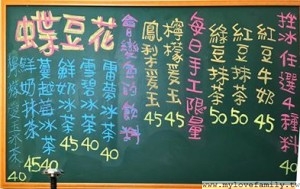 挫冰任選4種 50
紅豆牛奶 45
紅豆抹茶 50
綠豆抹茶 50
每日手工限量
檸檬愛玉 45
鳳梨愛玉 45
會變色的飲料
蝶豆花
雷夢冰茶 40
雪碧冰茶 40
鮮奶冰茶 45
蔓越莓冰茶 40
鮮奶抹茶 45
冰茶 40
www.mylovefamily.tw